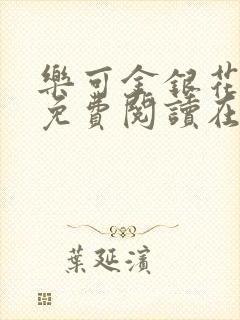 樂可金銀花
免費閱讀在
葉延濱